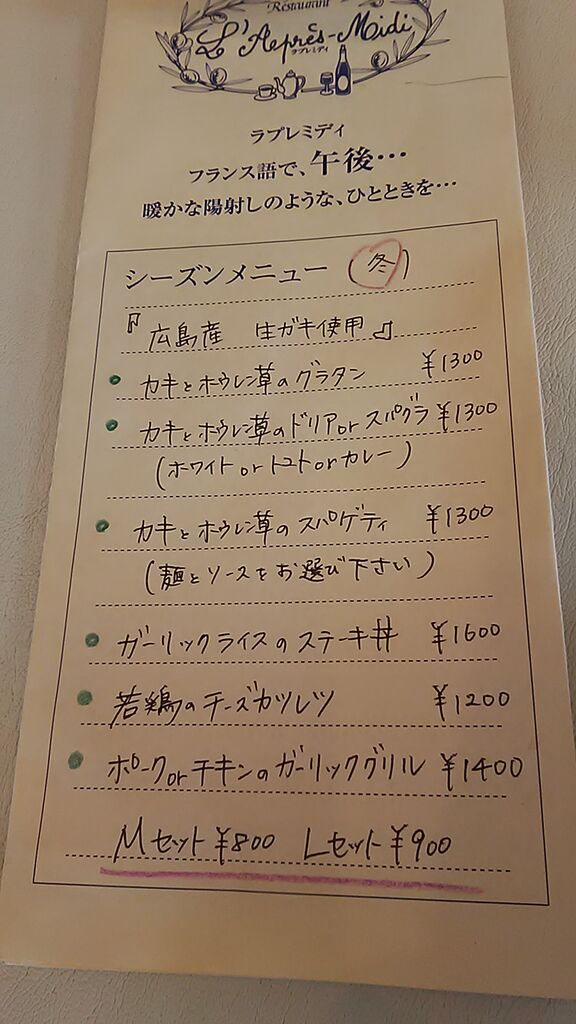 Restaurant
L'Après-Midi
ラプレミディ
ラプレミディ
フランス語で、午後…
暖かな陽射しのような、ひとときを…
シーズンメニュー (冬)
『広島産 生ガキ使用』
カキとホウレン草のグラタン ¥1300
カキとホウレン草のドリアorスパグラ ¥1300
(ホワイトorトマトorカレー)
カキとホウレン草のスパゲティ ¥1300
(麺とソースをお選び下さい)
ガーリックライスのステーキ丼 ¥1600
若鶏のチーズカツレツ ¥1200
ポークorチキンのガーリックグリル ¥1400
Mセット¥800 Lセット¥900